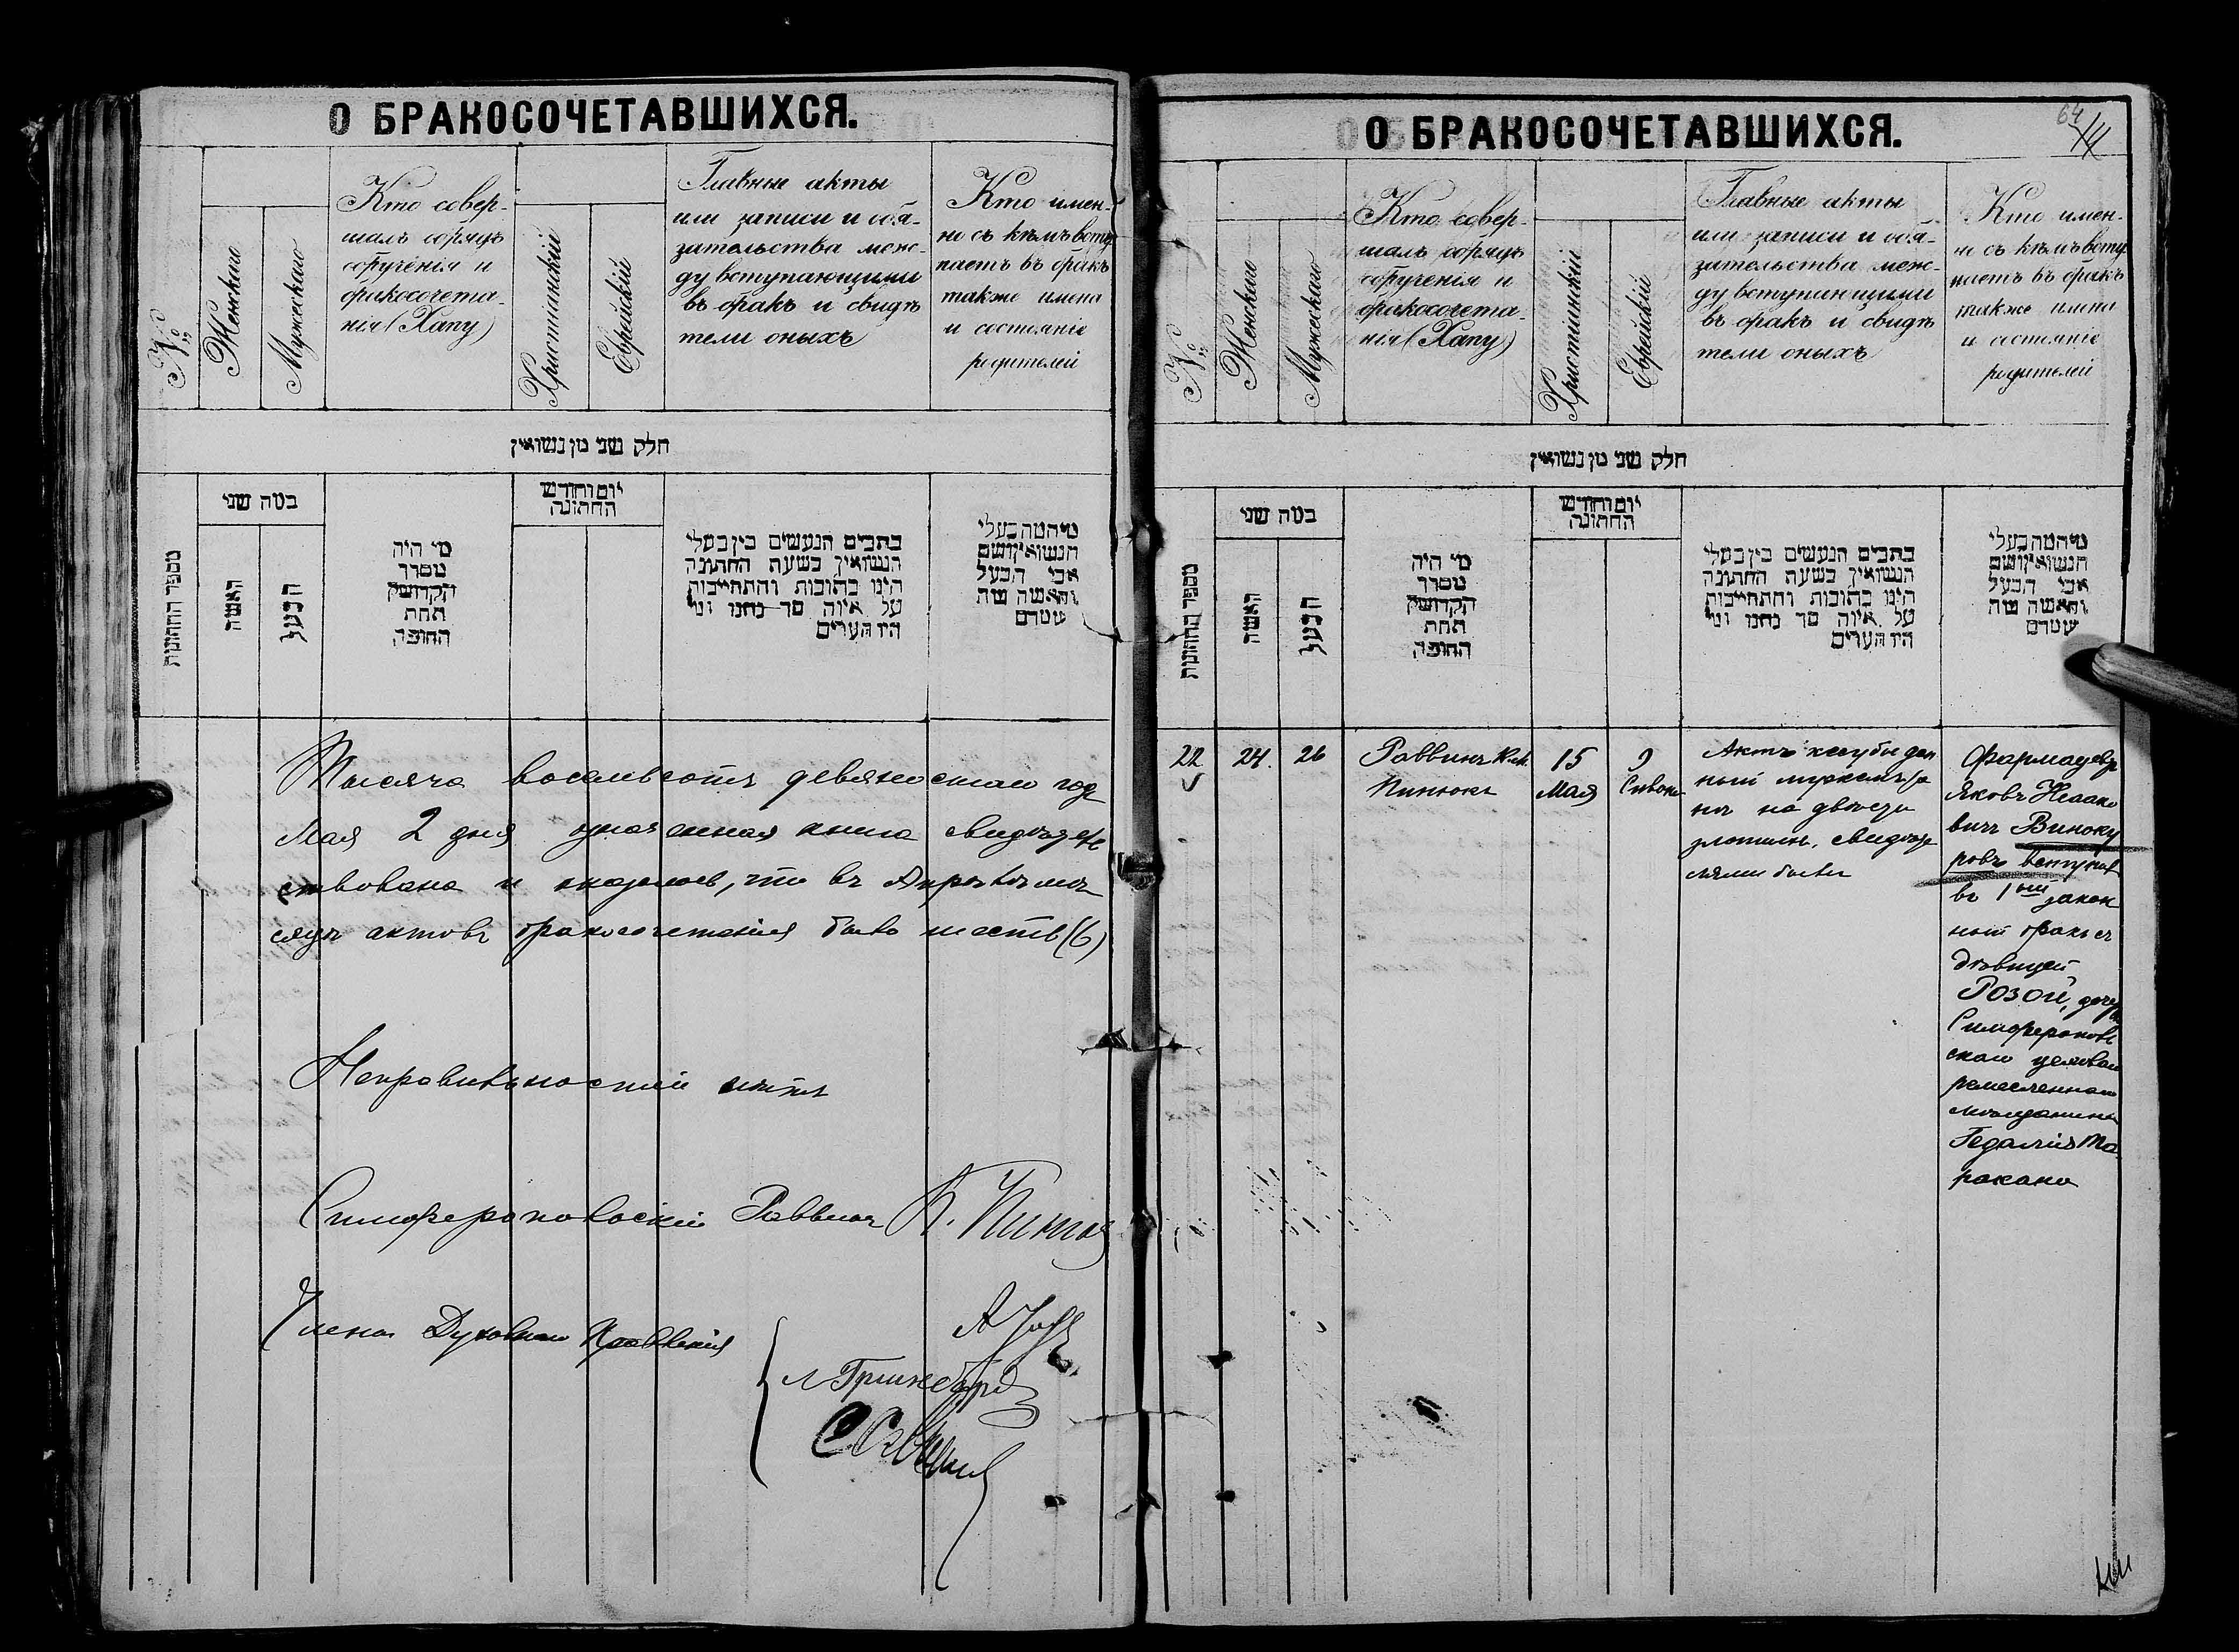 О БРАКОСОЧЕТАВШИХСЯ.
№
Женского
Мужескаго
Кто совер-
шалъ обрядъ
обрученія и
бракосочета-
нія (Хапу)
Христіанскій
Еврейскій
Главные акты
или записи и обя-
зательства меж-
ду вступающими
въ бракъ и свидѣ
тели оныхъ
Кто имен-
но съ кѣмъ всту
паетъ въ бракъ
также имена
и состояніе
родителей
חלק שני מן נשואין
מספר החתונות
במה שני
האשה
הבעל
מי היה
מסדר
הקדושין
תחת
החופה
יום וחודש
החתונה
כתבים הנעשים בין בעלי
הנשואין בשעת החתונה
הינו כתובות והתחייבות
על איזה סך נתנו ומי
היו העדים
מי המה בעלי
הנשואין ושם
אבי הבעל
והאשה שה
שטרם
Тысяча восемьсотъ девяностаго года
Мая 2 дня означенная книга свидѣтель
ствована и оказалось, что въ Апрѣлѣ мѣ
сяцѣ актовъ бракосочетанія было шесть (6)
Неправильностей нѣтъ
Симферопольскій Раввинъ К. Пинюкъ
Члены Духовнаго Правленія
О БРАКОСОЧЕТАВШИХСЯ.
64
№
Женского
Мужескаго
Кто совер-
шалъ обрядъ
обрученія и
бракосочета-
нія (Хапу)
Христіанскій
Еврейскій
Главные акты
или записи и обя-
зательства меж-
ду вступающими
въ бракъ и свидѣ
тели оныхъ
Кто имен-
но съ кѣмъ всту
паетъ въ бракъ
также имена
и состояніе
родителей
חלק שני מן נשואין
מספר החתונות
במה שני
האשה
הבעל
מי היה
מסדר
הקדושין
תחת
החופה
יום וחודש
החתונה
כתבים הנעשים בין בעלי
הנשואין בשעת החתונה
הינו כתובות והתחייבות
על איזה סך נתנו ומי
היו העדים
מי המה בעלי
הנשואין ושם
אבי הבעל
והאשה שה
שטרם
22
24.
26
Раввинъ
Пинюкъ
15
Мая
9
Сивона
Актъ кесубы дан
ный
на двѣсти
злотыхъ, свидѣте
лями были
Фармацевтъ
Яковъ Исаако
вичъ Виноку
ровъ вступилъ
въ 1ый закон
ный бракъ съ
дѣвицей
Розой, дочерью
Симферополь
скаго цехового
ремесленнаго
мѣщанина
Гедалія Та
ракана